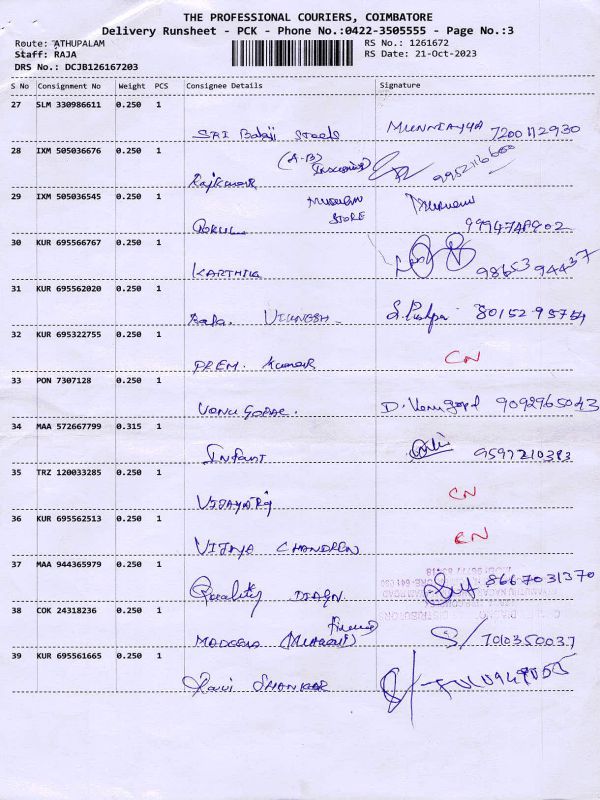 THE PROFESSIONAL COURIERS, COIMBATORE
Delivery Runsheet - PCK - Phone No.:0422-3505555 - Page No.:3
Route: ATHUPALAM RS No.: 1261672
Staff: RAJA RS Date: 21-Oct-2023
DRS No.: DCJB126167203
S No Consignment No Weight PCS Consignee Details Signature
27 SLM 330986611 0.250 1
SRI Balaji Steels MUNNIAYYA 7200112930
28 IXM 505036676 0.250 1
Rajkumar
29 IXM 505036545 0.250 1
STORE
GOKUL
30 KUR 695566767 0.250 1
KARTHIK 98653 94437
31 KUR 695562020 0.250 1
VIGNESH S. Pushpa 80152 95754
32 KUR 695322755 0.250 1
PREM. Kumar CN
33 PON 7307128 0.250 1
VENUGOPAL. D. Venugopal 9092965043
34 MAA 572667799 0.315 1
INFANT 9597210383
35 TRZ 120033285 0.250 1
VIJAYARAJ CN
36 KUR 695562513 0.250 1
VIJAYA CHANDREN CN
37 MAA 944365979 0.250 1
Quality DIAGN 8667031370
38 COK 24318236 0.250 1
7010350037
39 KUR 695561665 0.250 1
Ravi SHANKAR